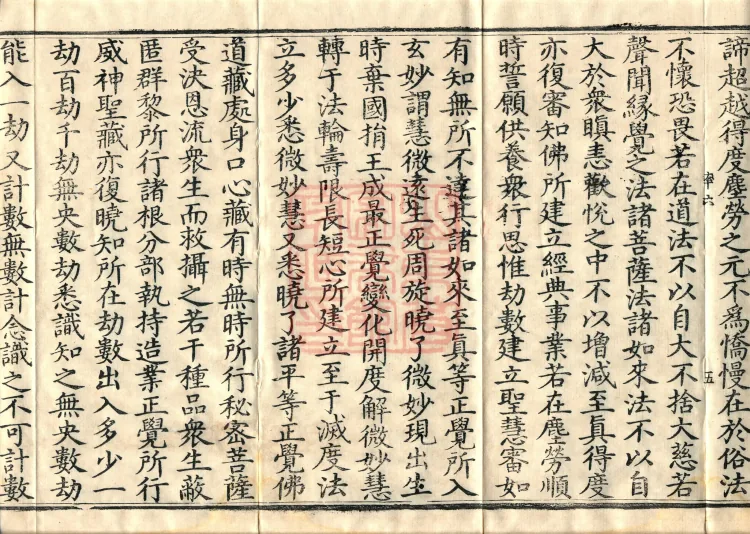 諦超越得度塵勞之元不爲憍慢在於俗法
不懷恐畏若在道法不以自大不捨大慈若
聲聞緣覺之法諸菩薩法諸如來法不以自
大於衆瞋恚歡悅之中不以增減至真得度
亦復審知佛所建立經典事業若在塵勞順
時誓願供養衆行思惟劫數建立聖慧審如
有知無所不達其諸如來至真等正覺所入
玄妙謂慧微遠生死周旋曉了微妙現出生
時棄國捐王成最正覺變化開度解微妙慧
轉于法輪壽限長短心所建立至于滅度法
立多少悉微妙慧又悉曉了諸平等正覺佛
道藏處身口心藏有時無時所行秘密菩薩
受決恩流衆生而救攝之若干種品衆生蔽
匿群黎所行諸根分部執持造業正覺所行
威神聖藏亦復曉知所在劫數出入多少一
劫百劫千劫無央數劫悉識知之無央數劫
能入一劫又計數無數計念識之不可計數
六
五